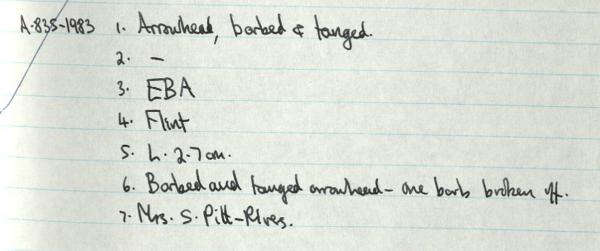 A-835-1983 1. Arrowhead, barbed & tanged.
2. –
3. EBA
4. Flint
5. L. 2.7cm.
6. Barbed and tanged arrowhead – one barb broken off.
7. Mrs. S. Pitt-Rives.